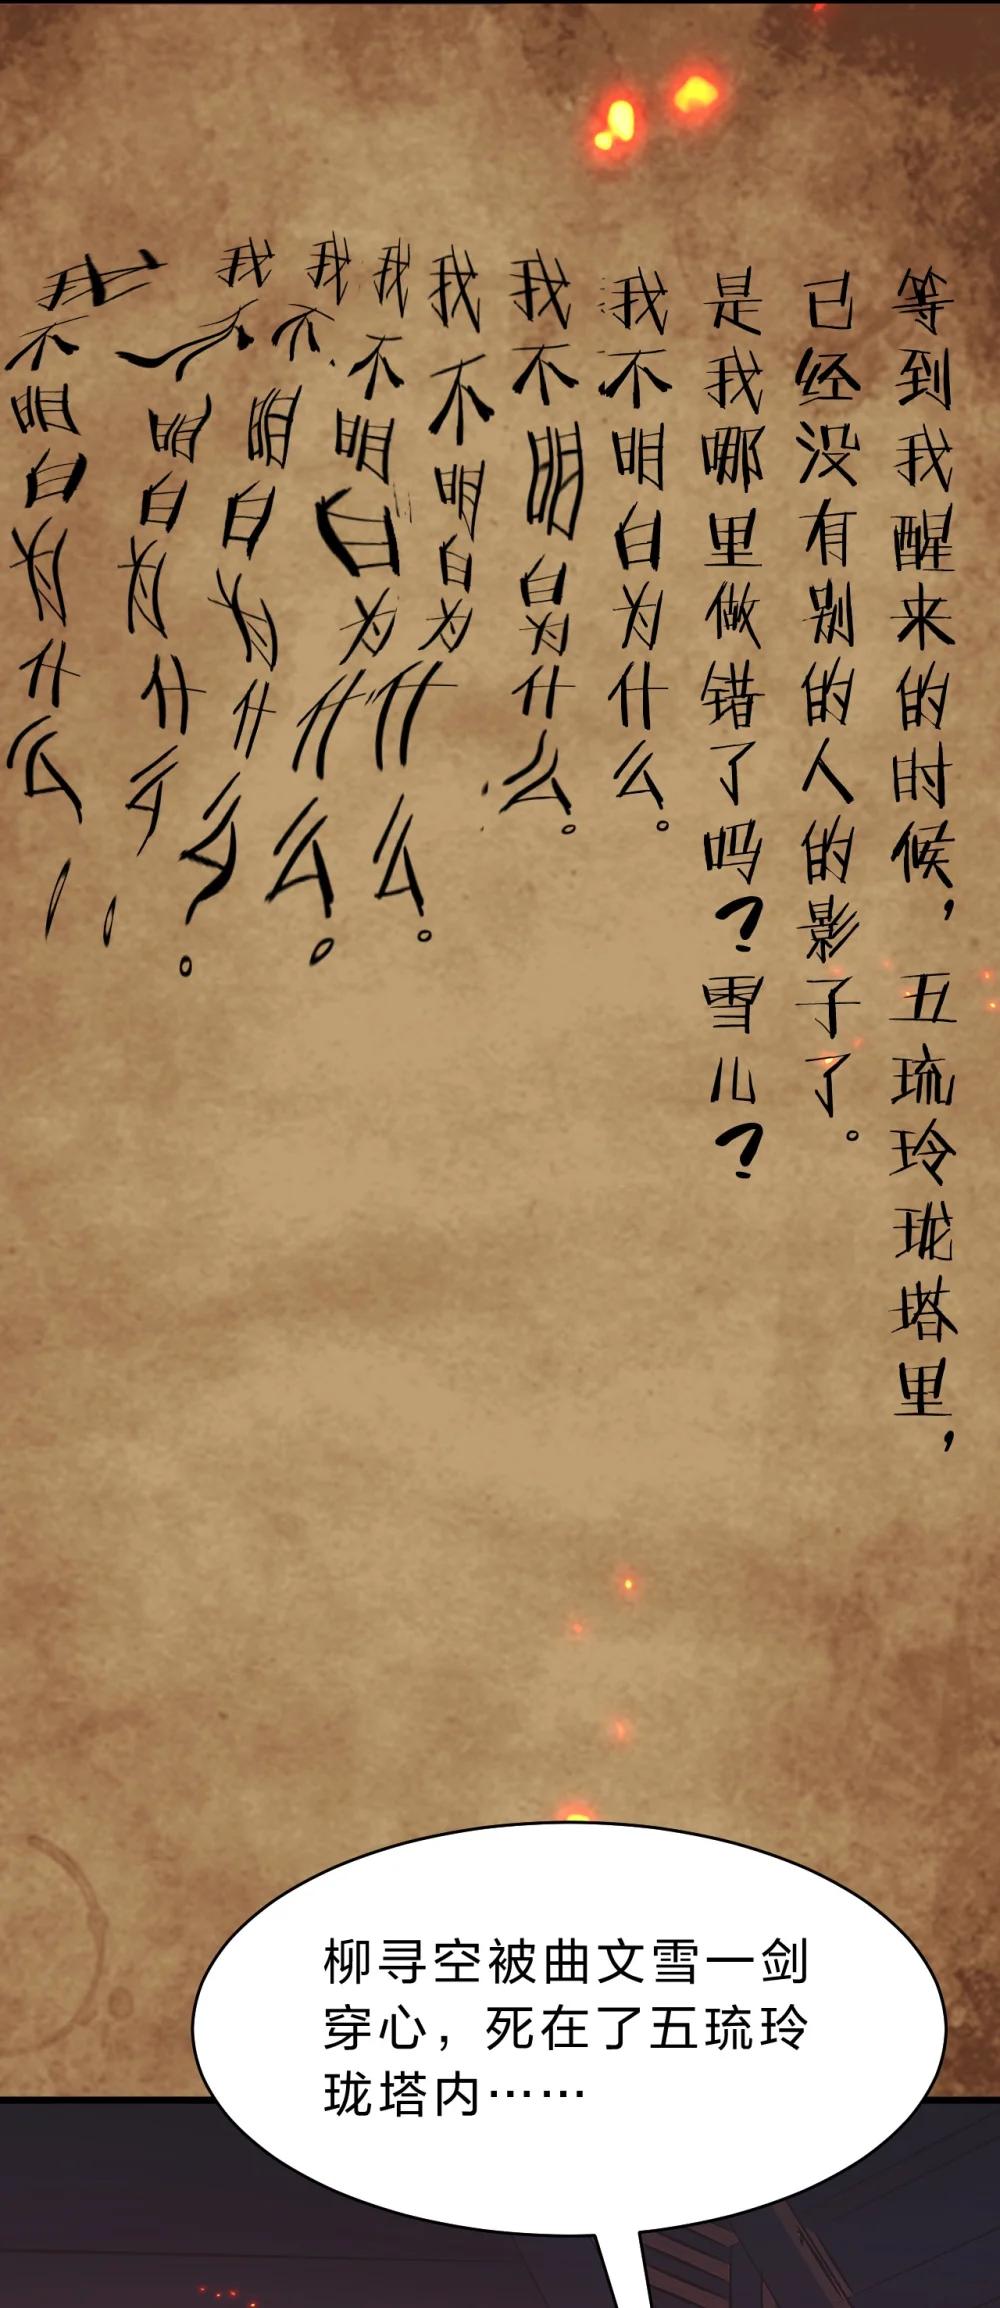 等到我醒来的时候，五琉玲珑塔里，
已经没有别的人的影子了。
是我哪里做错了吗？雪儿？
我不明白为什么。
我不明白为什么。
我不明白为什么。
我不明白为什么。
我不明白为什么。
我不明白为什么
我不明白为什么
柳寻空被曲文雪一剑
穿心，死在了五琉玲
珑塔内……